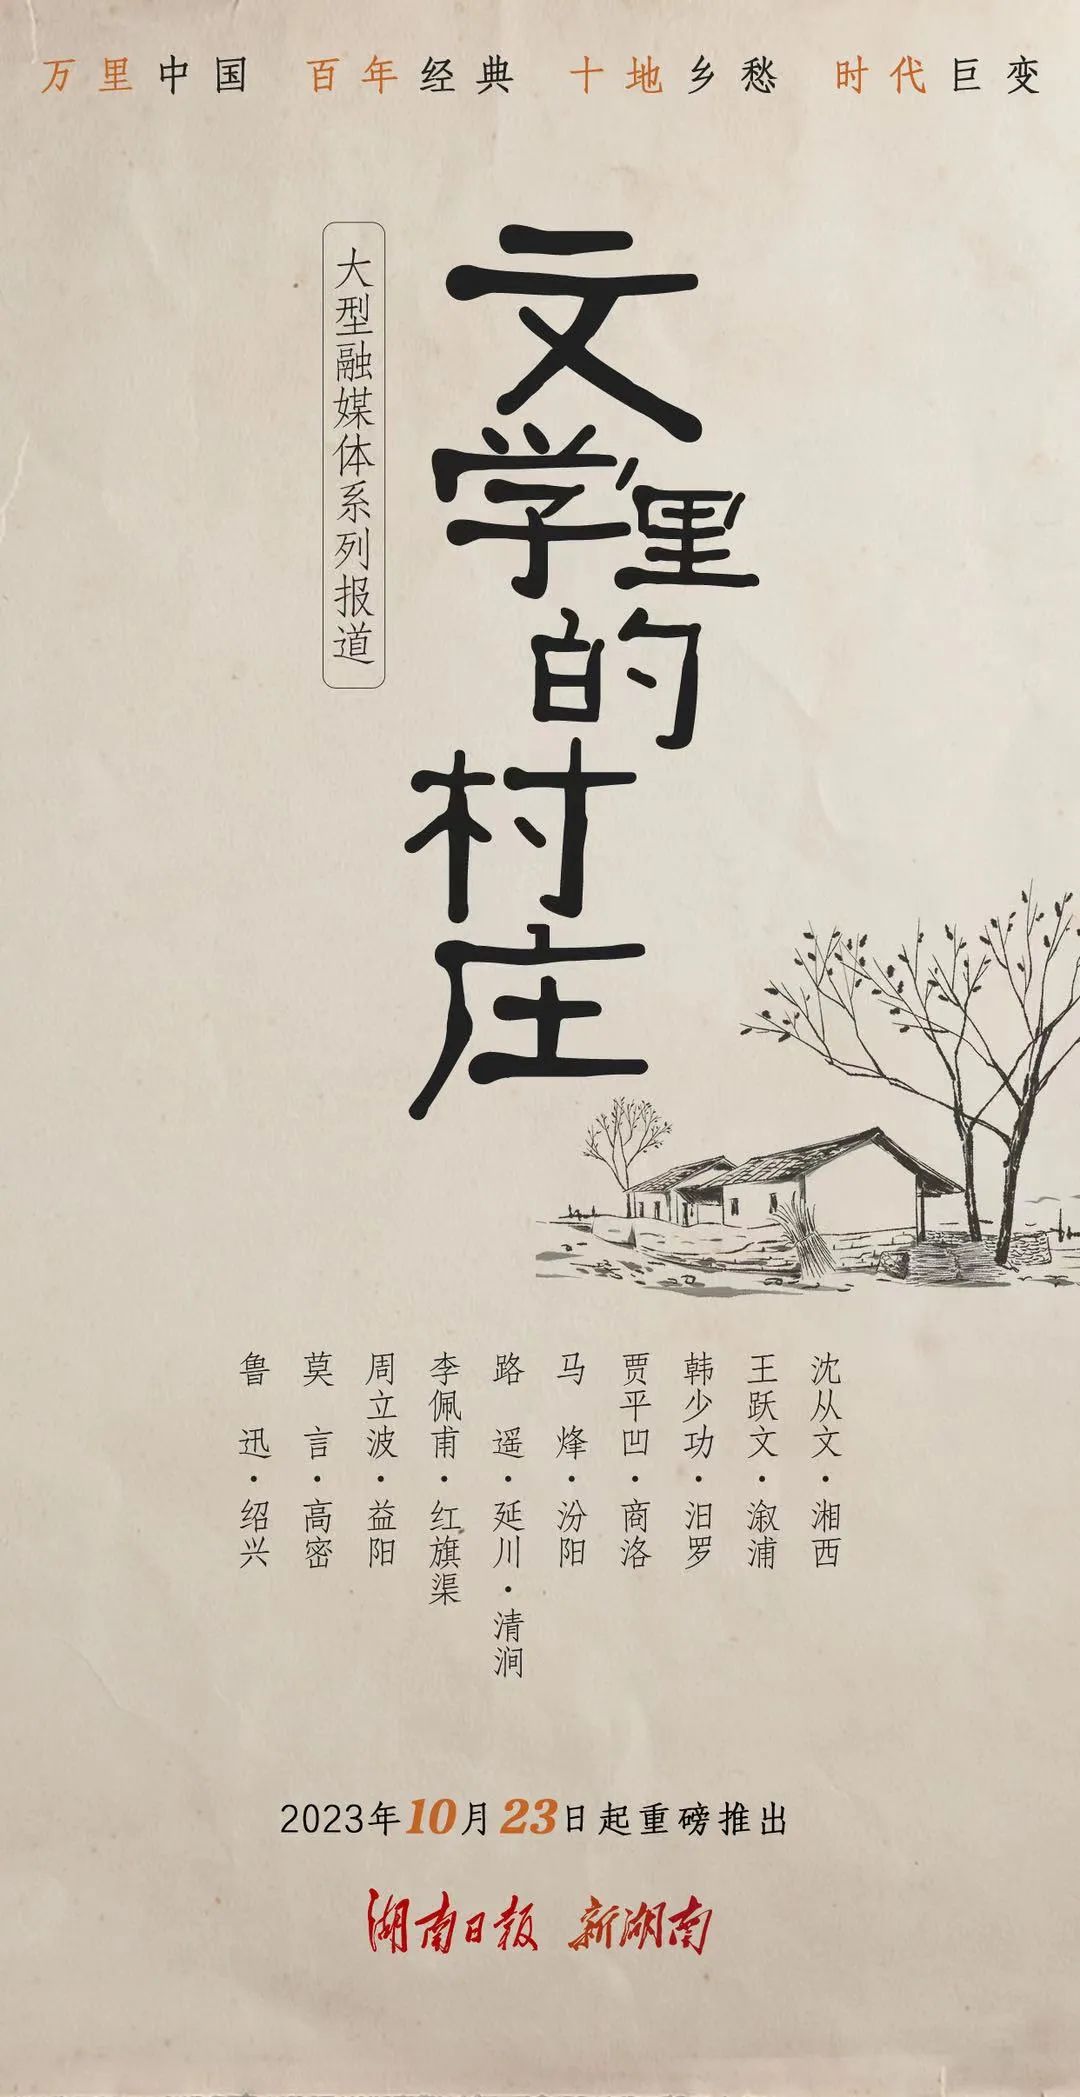 万里中国 百年经典 十地乡愁 时代巨变
文学里的村庄
大型融媒体系列报道
沈从文·湘西
王跃文·溆浦
韩少功·汨罗
贾平凹·商洛
马烽·汾阳
路遥·延川·清涧
李佩甫·红旗渠
周立波·益阳
莫言·高密
鲁迅·绍兴
2023年10月23日起重磅推出
湖南日报 新湖南